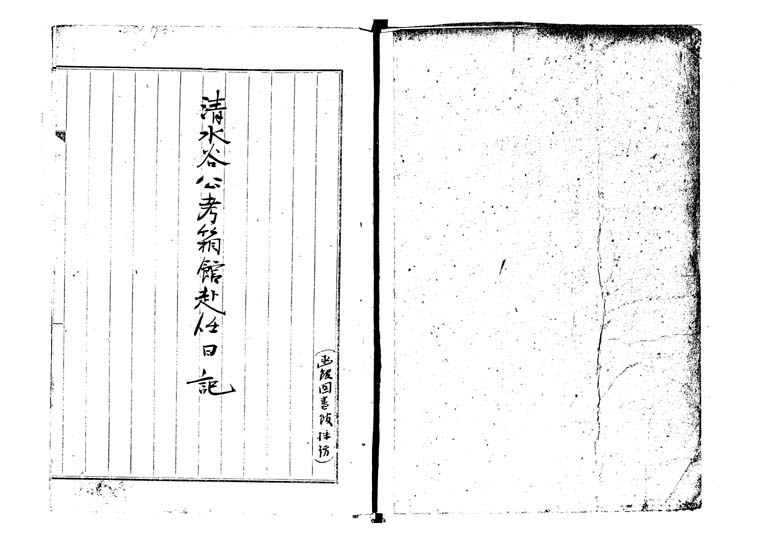 清水谷公考箱館赴任日記
(函館図書館